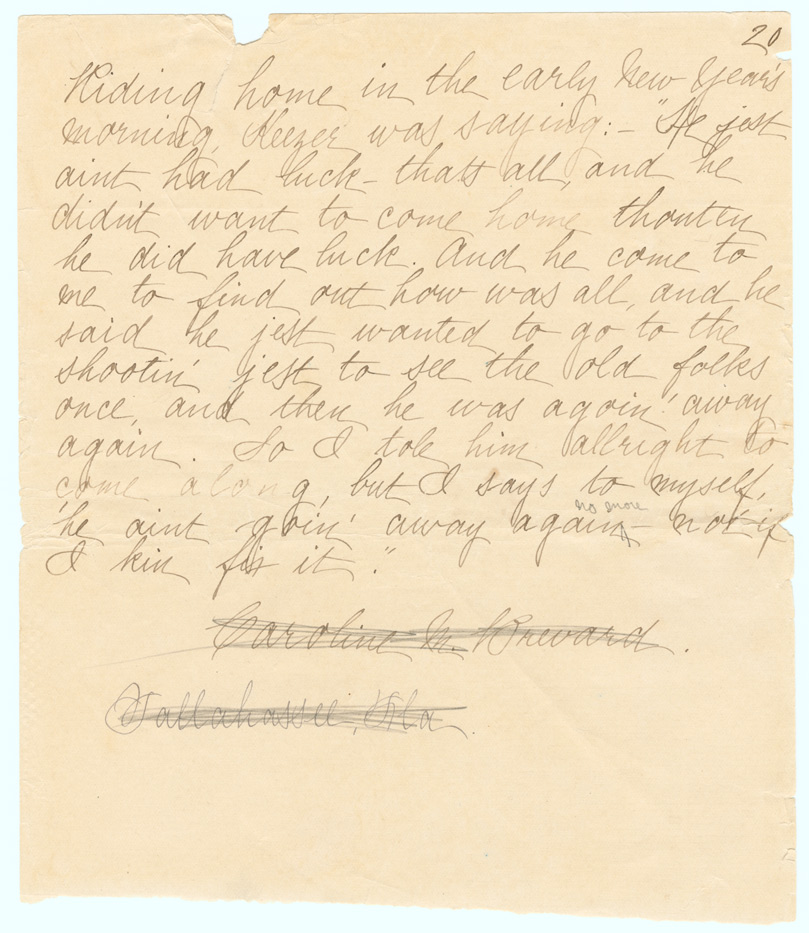 20
Riding home in the early New Year's
morning, Keezer was saying:- "He jest
aint had luck- thats all, and he
didn't want to come home thouten
he did have luck. And he come to
me to find out how was all, and he
said he jest wanted to go to the
shootin' jest to see the old folks
once, and then he was agoin' away
again. So I tole him allright to
come along, but I says to myself,
'he aint goin' away again no more - not if
I kin fix it."
Caroline M. Brevard.
Tallahassee, Fla.